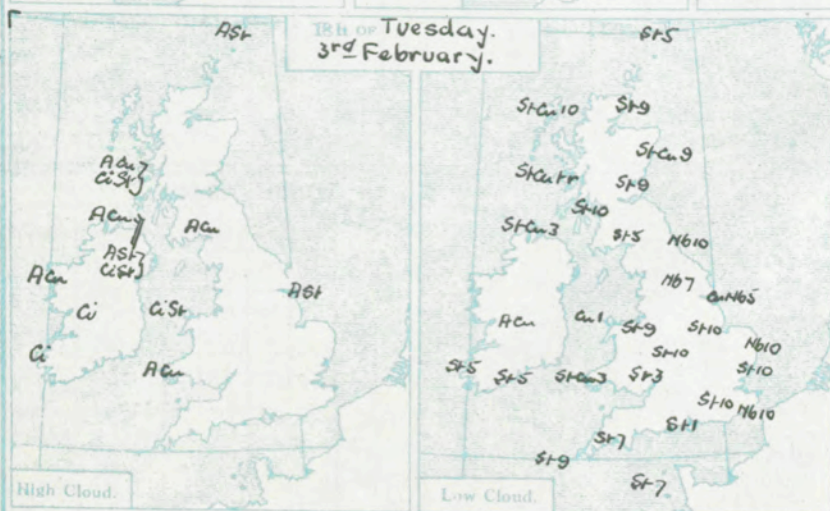 18h OF Tuesday.
3rd February.
ASt
ACu
CiSt
ACu
ACu
ASt
CiSt
ACu
ASt
Ci
CiSt
Ci
ACu
High Cloud.
St5
StCu10
St9
StCu9
StCu tr
St9
St10
StCu3
St5
Nb10
Nb7
CuNb5
ACu
Cu1
St9
St10
Nb10
St10
St5
St5
StCu3
St3
St10
St10
Nb10
St1
St7
St9
St7
Low Cloud.